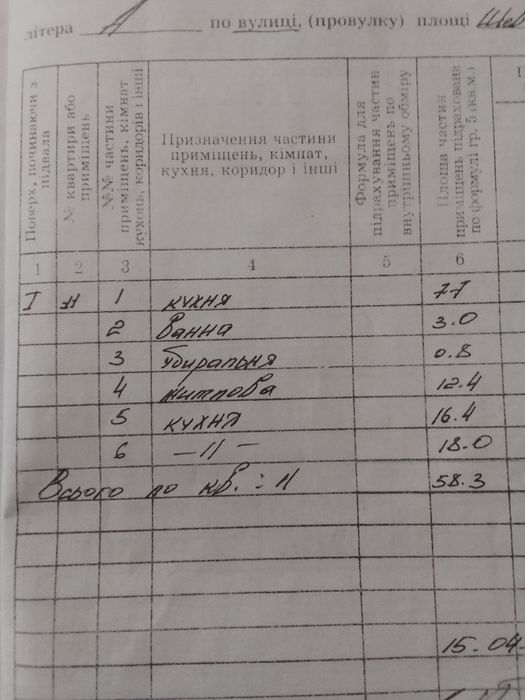 літера А по вулиці, (провулку) площі Шев
Поверх, починаючи з підвала
№ квартири або приміщень
№№ частини приміщень, кімнат кухонь, коридорів і інші
Призначення частини приміщень, кімнат, кухня, коридор і інші
Формула для підрахування частин приміщень по внутрішньому обміру
Площа частин приміщень підрахована по формулі гр. 5 (кв.м.)
1 2 3 4 5 6
I 11 1 кухня 7.7
2 ванна 3.0
3 убиральня 0.8
4 житлова 12.4
5 кухня 16.4
6 —11— 18.0
Всього по кв. : 11 58.3
15-04-